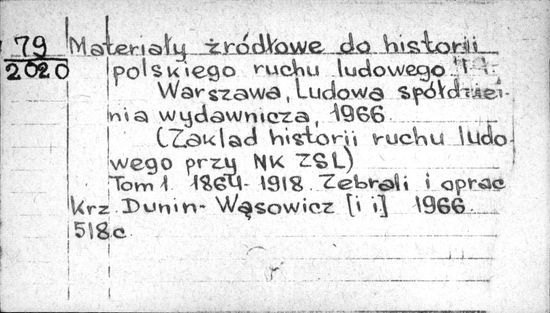 79
2020
Materiały źródłowe do historii
polskiego ruchu ludowego
Warszawa, Ludowa spółdziel-
nia wydawnicza, 1966
(Zakład historii ruchu ludo-
wego przy NK ZSL)
Tom 1. 1864-1918. Zebrali i oprac
Krz. Dunin-Wąsowicz [i i] 1966
518c